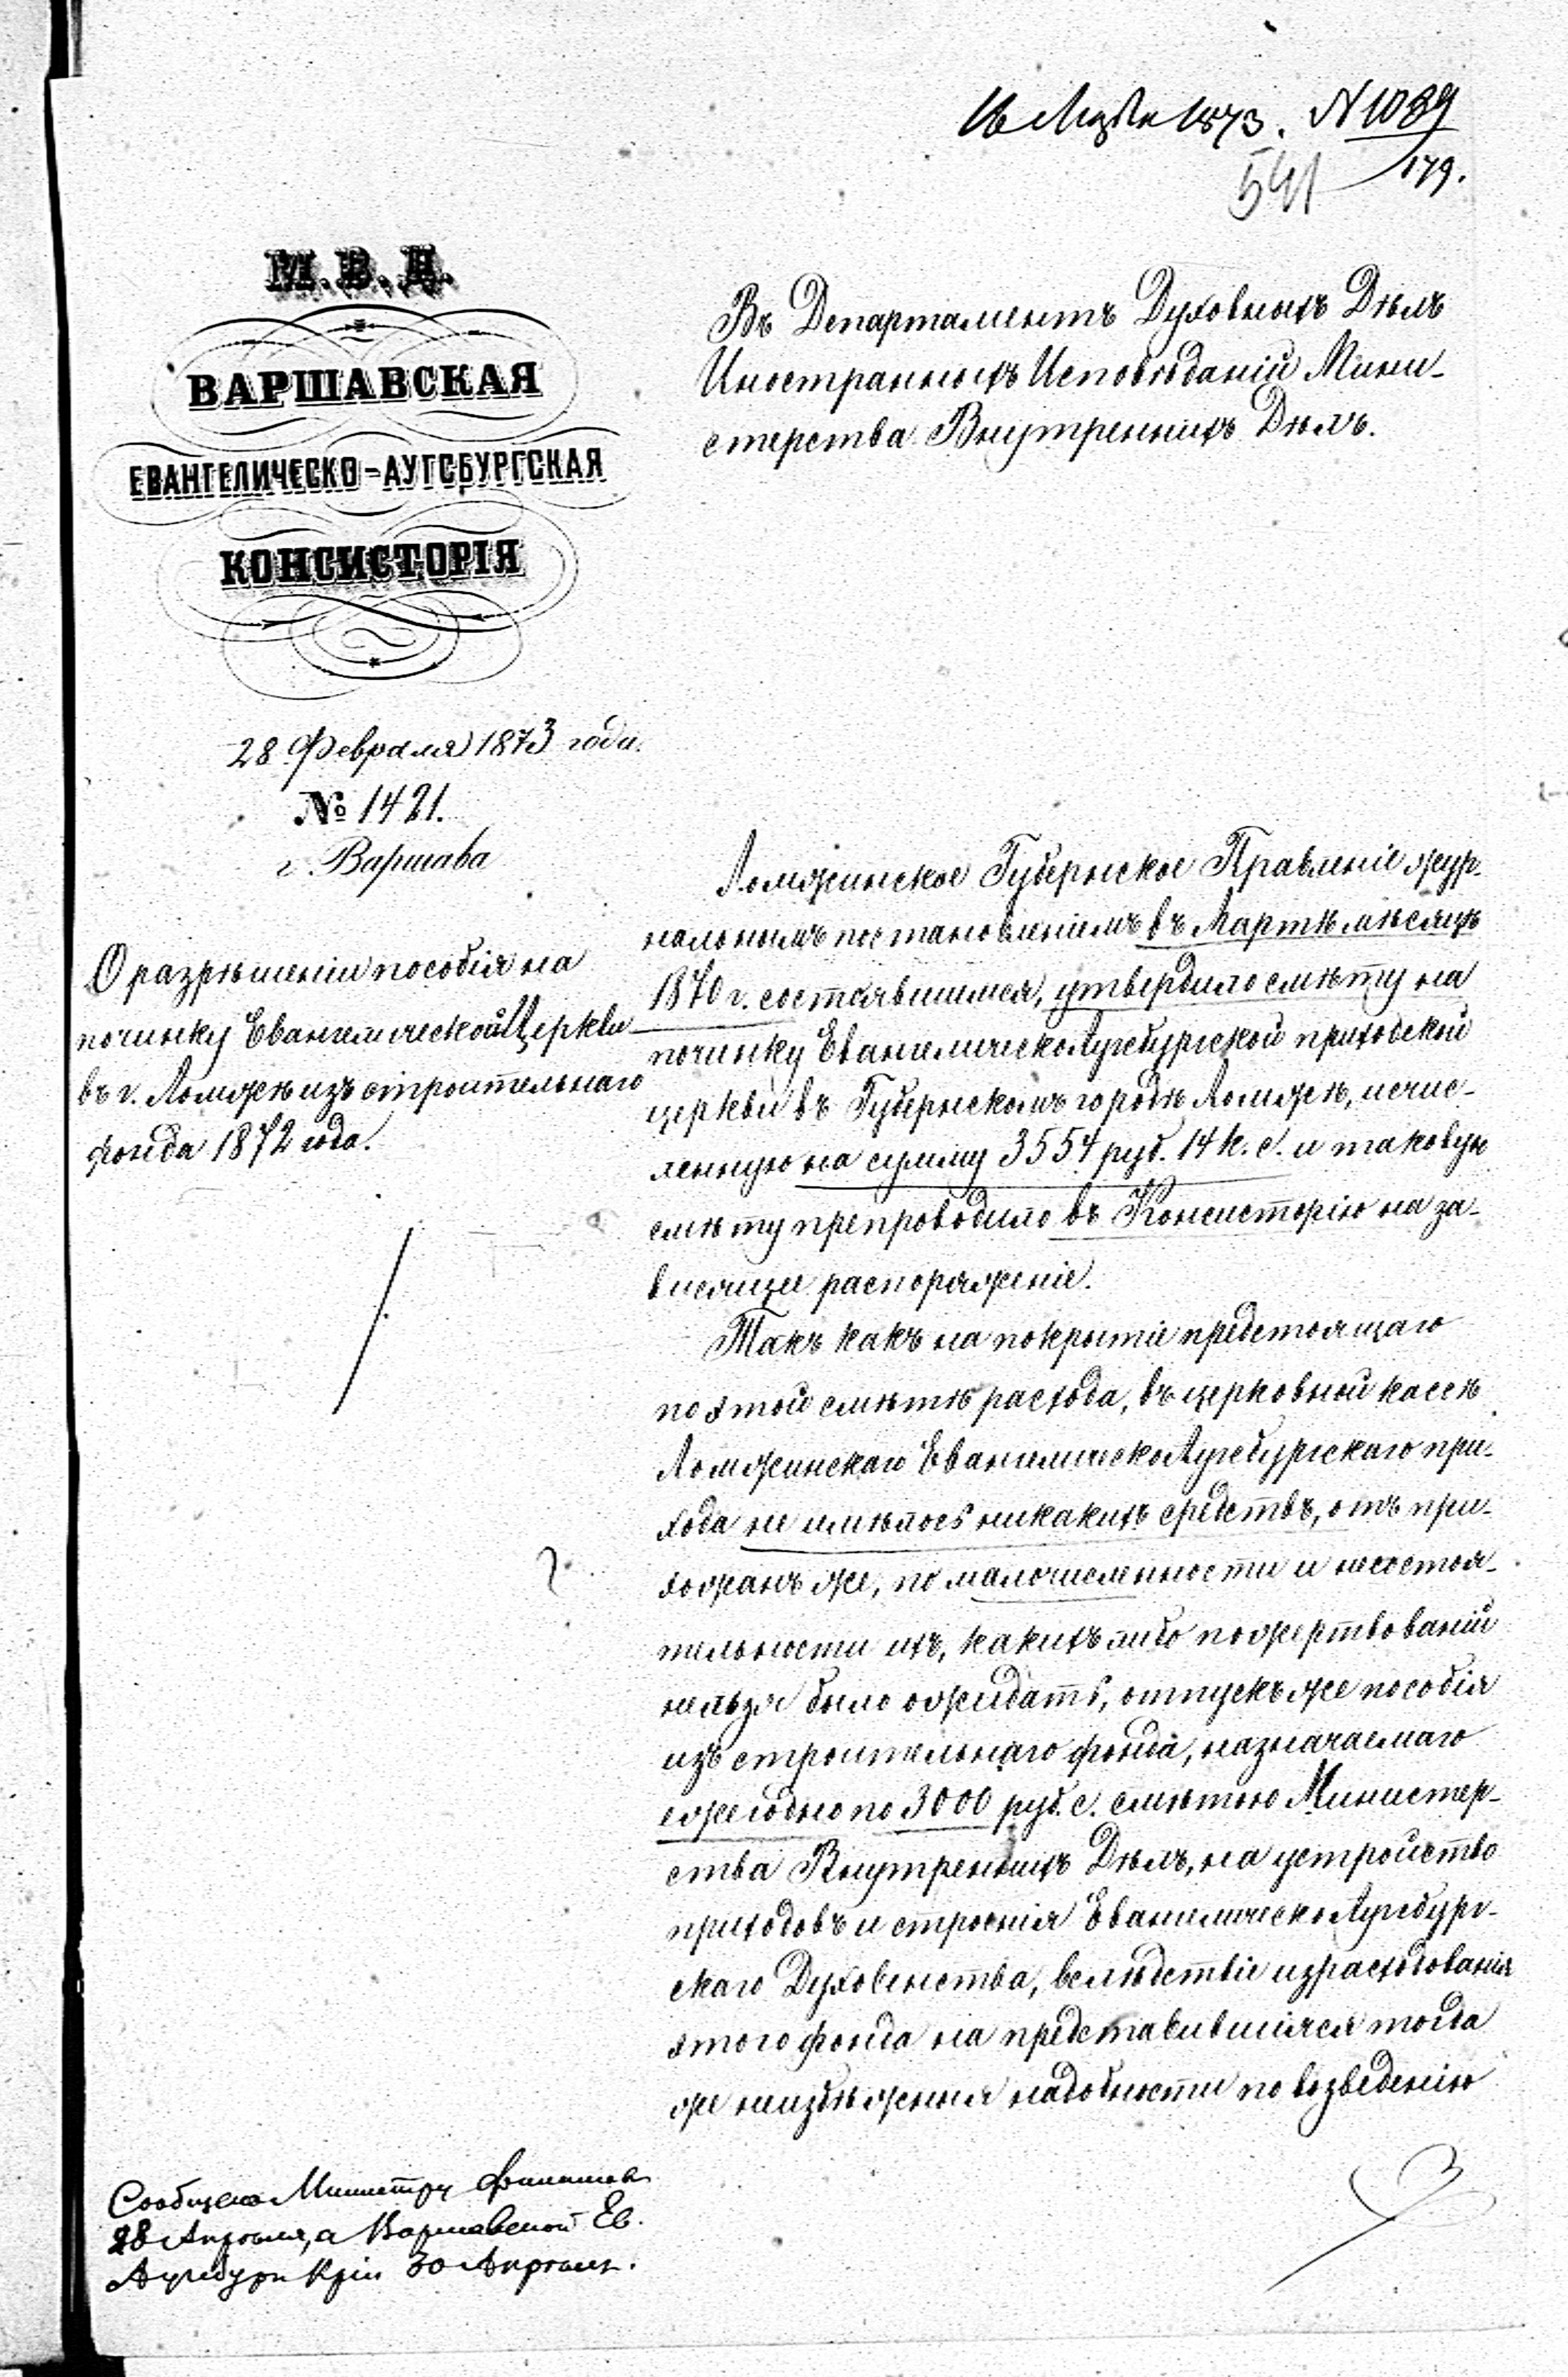 16 Марта 1873. № 1089
541 179.
М.В.Д.
ВАРШАВСКАЯ
ЕВАНГЕЛИЧЕСКО-АУГСБУРГСКАЯ
КОНСИСТОРІЯ
28 Февраля 1873 года.
№ 1421.
г. Варшава
О разрѣшеніи пособія на
починку Евангелической Церкви
въ г. Ломжѣ изъ строительнаго
фонда 1872 года.
Въ Департаментъ Духовныхъ Дѣлъ
Иностранныхъ Исповѣданій Мини-
стерства Внутреннихъ Дѣлъ.
Ломжинское Губернское Правленіе жур-
нальнымъ постановленіемъ въ Мартѣ мѣсяцѣ
1870 г. состоявшимся, утвердило смѣту на
починку Евангелическо Аугсбургской приходской
церкви въ Губернскомъ городѣ Ломжѣ, исчис-
ленную на сумму 3554 руб. 14 к. с. и таковую
смѣту препроводило въ Консисторію на за-
висящее распоряженіе.
Такъ какъ на покрытіе предстоящаго
по этой смѣтѣ расхода, въ церковной кассѣ
Ломжинскаго Евангелическо Аугсбургскаго при-
хода не имѣлось никакихъ средствъ, отъ при-
хожанъ же, по малочисленности и несостоя-
тельности ихъ, какихъ либо пожертвованій
нельзя было ожидать, отпускъ же пособія
изъ строительнаго фонда, назначаемаго
ежегодно по 3000 руб. с. смѣтою Министер-
ства Внутреннихъ Дѣлъ, на устройство
приходовъ и строенія Евангелическо Аугсбург-
скаго Духовенства, вслѣдствіе израсходованія
этого фонда на представившіяся тогда
же неизбѣжныя надобности по возведенію
Сообщено Министру Финансовъ
28 Апрѣля, а Варшавской Ев.
Аугсбург Кріи 30 Апрѣля.